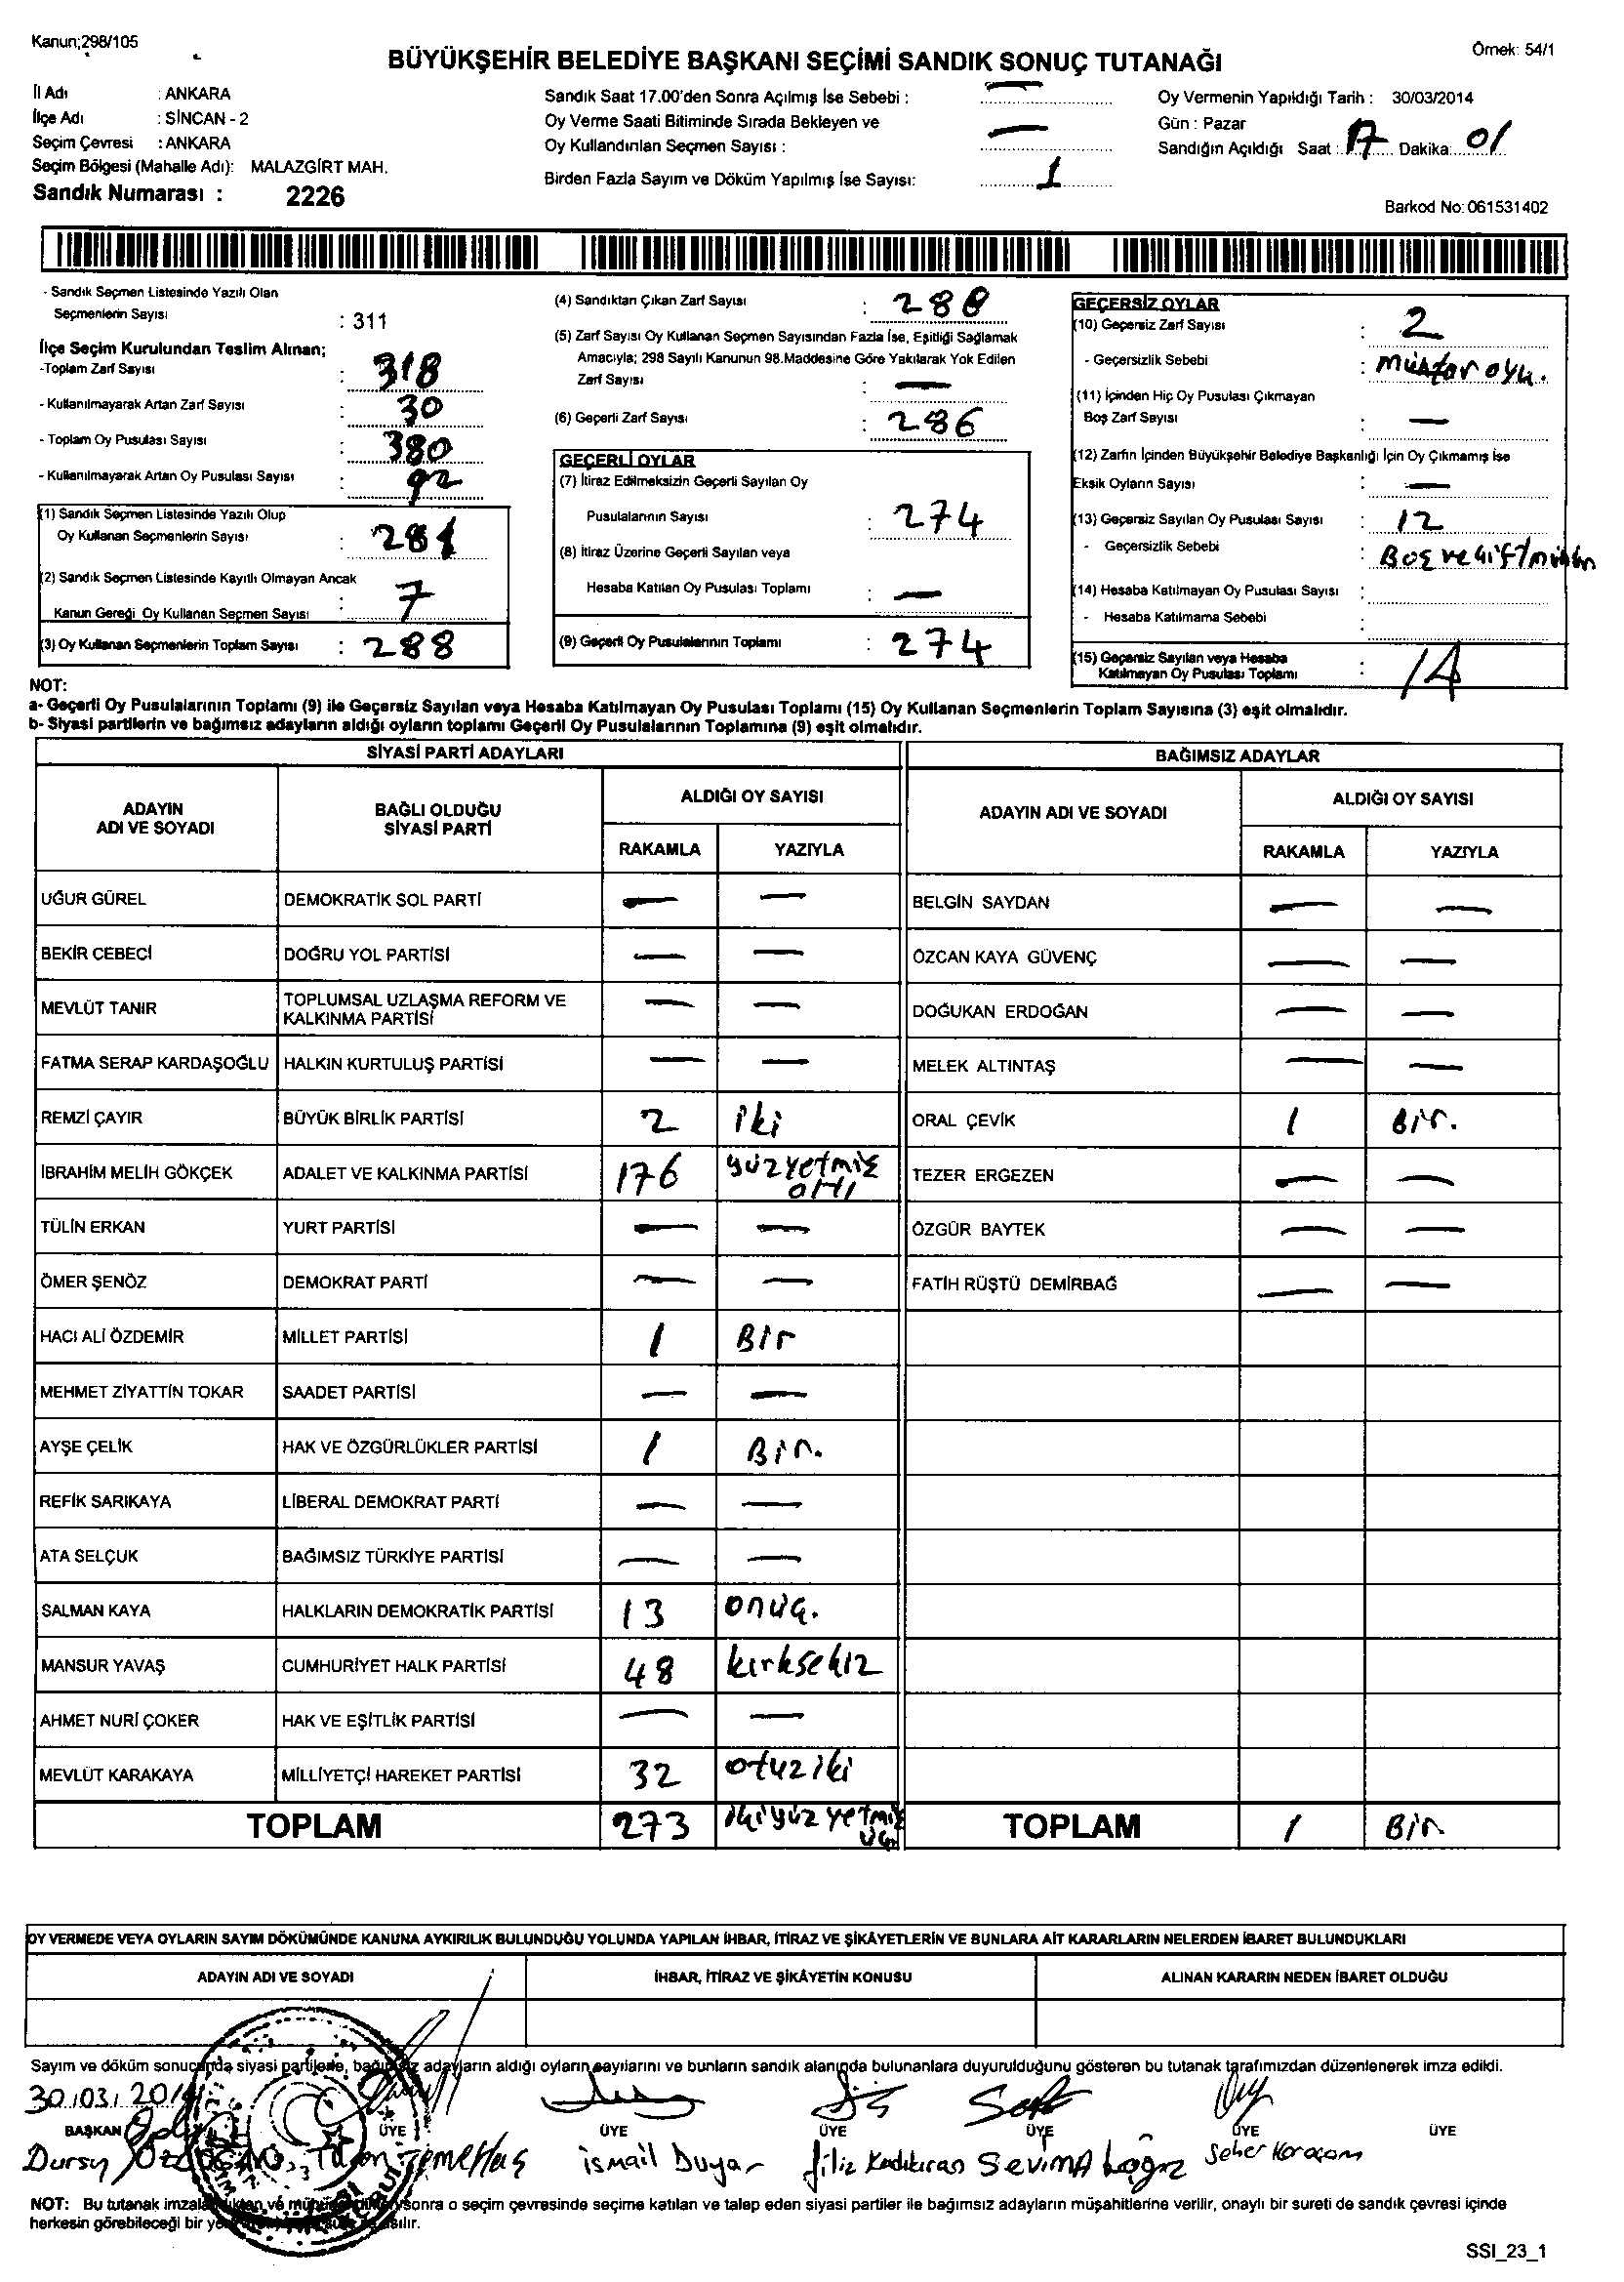 Kanun;298/105
Örnek: 54/1
BÜYÜKŞEHİR BELEDİYE BAŞKANI SEÇİMİ SANDIK SONUÇ TUTANAĞI
İl Adı : ANKARA
İlçe Adı : SİNCAN - 2
Seçim Çevresi : ANKARA
Seçim Bölgesi (Mahalle Adı): MALAZGİRT MAH.
Sandık Numarası : 2226
Sandık Saat 17.00'den Sonra Açılmış İse Sebebi : —
Oy Verme Saati Bitiminde Sırada Bekleyen ve
Oy Kullandırılan Seçmen Sayısı : —
Birden Fazla Sayım ve Döküm Yapılmış İse Sayısı: 1
Oy Vermenin Yapıldığı Tarih : 30/03/2014
Gün : Pazar
Sandığın Açıldığı Saat : 17 Dakika: 01
Barkod No: 061531402
- Sandık Seçmen Listesinde Yazılı Olan
Seçmenlerin Sayısı : 311
İlçe Seçim Kurulundan Teslim Alınan;
-Toplam Zarf Sayısı : 318
- Kullanılmayarak Artan Zarf Sayısı : 30
- Toplam Oy Pusulası Sayısı : 380
- Kullanılmayarak Artan Oy Pusulası Sayısı : 92
(1) Sandık Seçmen Listesinde Yazılı Olup
Oy Kullanan Seçmenlerin Sayısı : 281
(2) Sandık Seçmen Listesinde Kayıtlı Olmayan Ancak
Kanun Gereği Oy Kullanan Seçmen Sayısı : 7
(3) Oy Kullanan Seçmenlerin Toplam Sayısı : 288
(4) Sandıktan Çıkan Zarf Sayısı : 288
(5) Zarf Sayısı Oy Kullanan Seçmen Sayısından Fazla İse, Eşitliği Sağlamak
Amacıyla; 298 Sayılı Kanunun 98.Maddesine Göre Yakılarak Yok Edilen
Zarf Sayısı : —
(6) Geçerli Zarf Sayısı : 286
GEÇERLİ OYLAR
(7) İtiraz Edilmeksizin Geçerli Sayılan Oy
Pusulalarının Sayısı : 274
(8) İtiraz Üzerine Geçerli Sayılan veya
Hesaba Katılan Oy Pusulası Toplamı : —
(9) Geçerli Oy Pusulalarının Toplamı : 274
GEÇERSİZ OYLAR
(10) Geçersiz Zarf Sayısı : 2
- Geçersizlik Sebebi : Muhtar oyu.
(11) İçinden Hiç Oy Pusulası Çıkmayan
Boş Zarf Sayısı : —
(12) Zarfın İçinden Büyükşehir Belediye Başkanlığı İçin Oy Çıkmamış İse
Eksik Oyların Sayısı : —
(13) Geçersiz Sayılan Oy Pusulası Sayısı : 12
- Geçersizlik Sebebi : Boş ve çift
(14) Hesaba Katılmayan Oy Pusulası Sayısı :
- Hesaba Katılmama Sebebi :
(15) Geçersiz Sayılan veya Hesaba
Katılmayan Oy Pusulası Toplamı : 14
NOT:
a- Geçerli Oy Pusulalarının Toplamı (9) ile Geçersiz Sayılan veya Hesaba Katılmayan Oy Pusulası Toplamı (15) Oy Kullanan Seçmenlerin Toplam Sayısına (3) eşit olmalıdır.
b- Siyasi partilerin ve bağımsız adayların aldığı oyların toplamı Geçerli Oy Pusulalarının Toplamına (9) eşit olmalıdır.
SİYASİ PARTİ ADAYLARI
ADAYIN ADI VE SOYADI BAĞLI OLDUĞU SİYASİ PARTİ ALDIĞI OY SAYISI
RAKAMLA YAZIYLA
UĞUR GÜREL DEMOKRATİK SOL PARTİ — —
BEKİR CEBECİ DOĞRU YOL PARTİSİ — —
MEVLÜT TANIR TOPLUMSAL UZLAŞMA REFORM VE KALKINMA PARTİSİ — —
FATMA SERAP KARDAŞOĞLU HALKIN KURTULUŞ PARTİSİ — —
REMZİ ÇAYIR BÜYÜK BİRLİK PARTİSİ 2 iki
İBRAHİM MELİH GÖKÇEK ADALET VE KALKINMA PARTİSİ 176 yüzyetmiş altı
TÜLİN ERKAN YURT PARTİSİ — —
ÖMER ŞENÖZ DEMOKRAT PARTİ — —
HACI ALİ ÖZDEMİR MİLLET PARTİSİ 1 Bir
MEHMET ZİYATTİN TOKAR SAADET PARTİSİ — —
AYŞE ÇELİK HAK VE ÖZGÜRLÜKLER PARTİSİ 1 Bir.
REFİK SARIKAYA LİBERAL DEMOKRAT PARTİ — —
ATA SELÇUK BAĞIMSIZ TÜRKİYE PARTİSİ — —
SALMAN KAYA HALKLARIN DEMOKRATİK PARTİSİ 13 onüç.
MANSUR YAVAŞ CUMHURİYET HALK PARTİSİ 48 kırksekiz
AHMET NURİ ÇOKER HAK VE EŞİTLİK PARTİSİ — —
MEVLÜT KARAKAYA MİLLİYETÇİ HAREKET PARTİSİ 32 otuziki
TOPLAM 273 ikiyüz yetmiş üç
BAĞIMSIZ ADAYLAR
ADAYIN ADI VE SOYADI ALDIĞI OY SAYISI
RAKAMLA YAZIYLA
BELGİN SAYDAN — —
ÖZCAN KAYA GÜVENÇ — —
DOĞUKAN ERDOĞAN — —
MELEK ALTINTAŞ — —
ORAL ÇEVİK 1 Bir.
TEZER ERGEZEN — —
ÖZGÜR BAYTEK — —
FATİH RÜŞTÜ DEMİRBAĞ — —
TOPLAM 1 Bir
OY VERMEDE VEYA OYLARIN SAYIM DÖKÜMÜNDE KANUNA AYKIRILIK BULUNDUĞU YOLUNDA YAPILAN İHBAR, İTİRAZ VE ŞİKÂYETLERİN VE BUNLARA AİT KARARLARIN NELERDEN İBARET BULUNDUKLARI
ADAYIN ADI VE SOYADI İHBAR, İTİRAZ VE ŞİKÂYETİN KONUSU ALINAN KARARIN NEDEN İBARET OLDUĞU
Sayım ve döküm sonucunda siyasi partilerle, bağımsız adayların aldığı oyların sayılarını ve bunların sandık alanında bulunanlara duyurulduğunu gösteren bu tutanak tarafımızdan düzenlenerek imza edildi.
30/03/2014
BAŞKAN ÜYE ÜYE ÜYE ÜYE ÜYE ÜYE
Dursun İsmail Duyar Filiz Kadıkıran Seher Karaçam
NOT: Bu tutanak sonra o seçim çevresinde seçime katılan ve talep eden siyasi partiler ile bağımsız adayların müşahitlerine verilir, onaylı bir sureti de sandık çevresi içinde
herkesin görebileceği bir yere asılır.
SSI_23_1